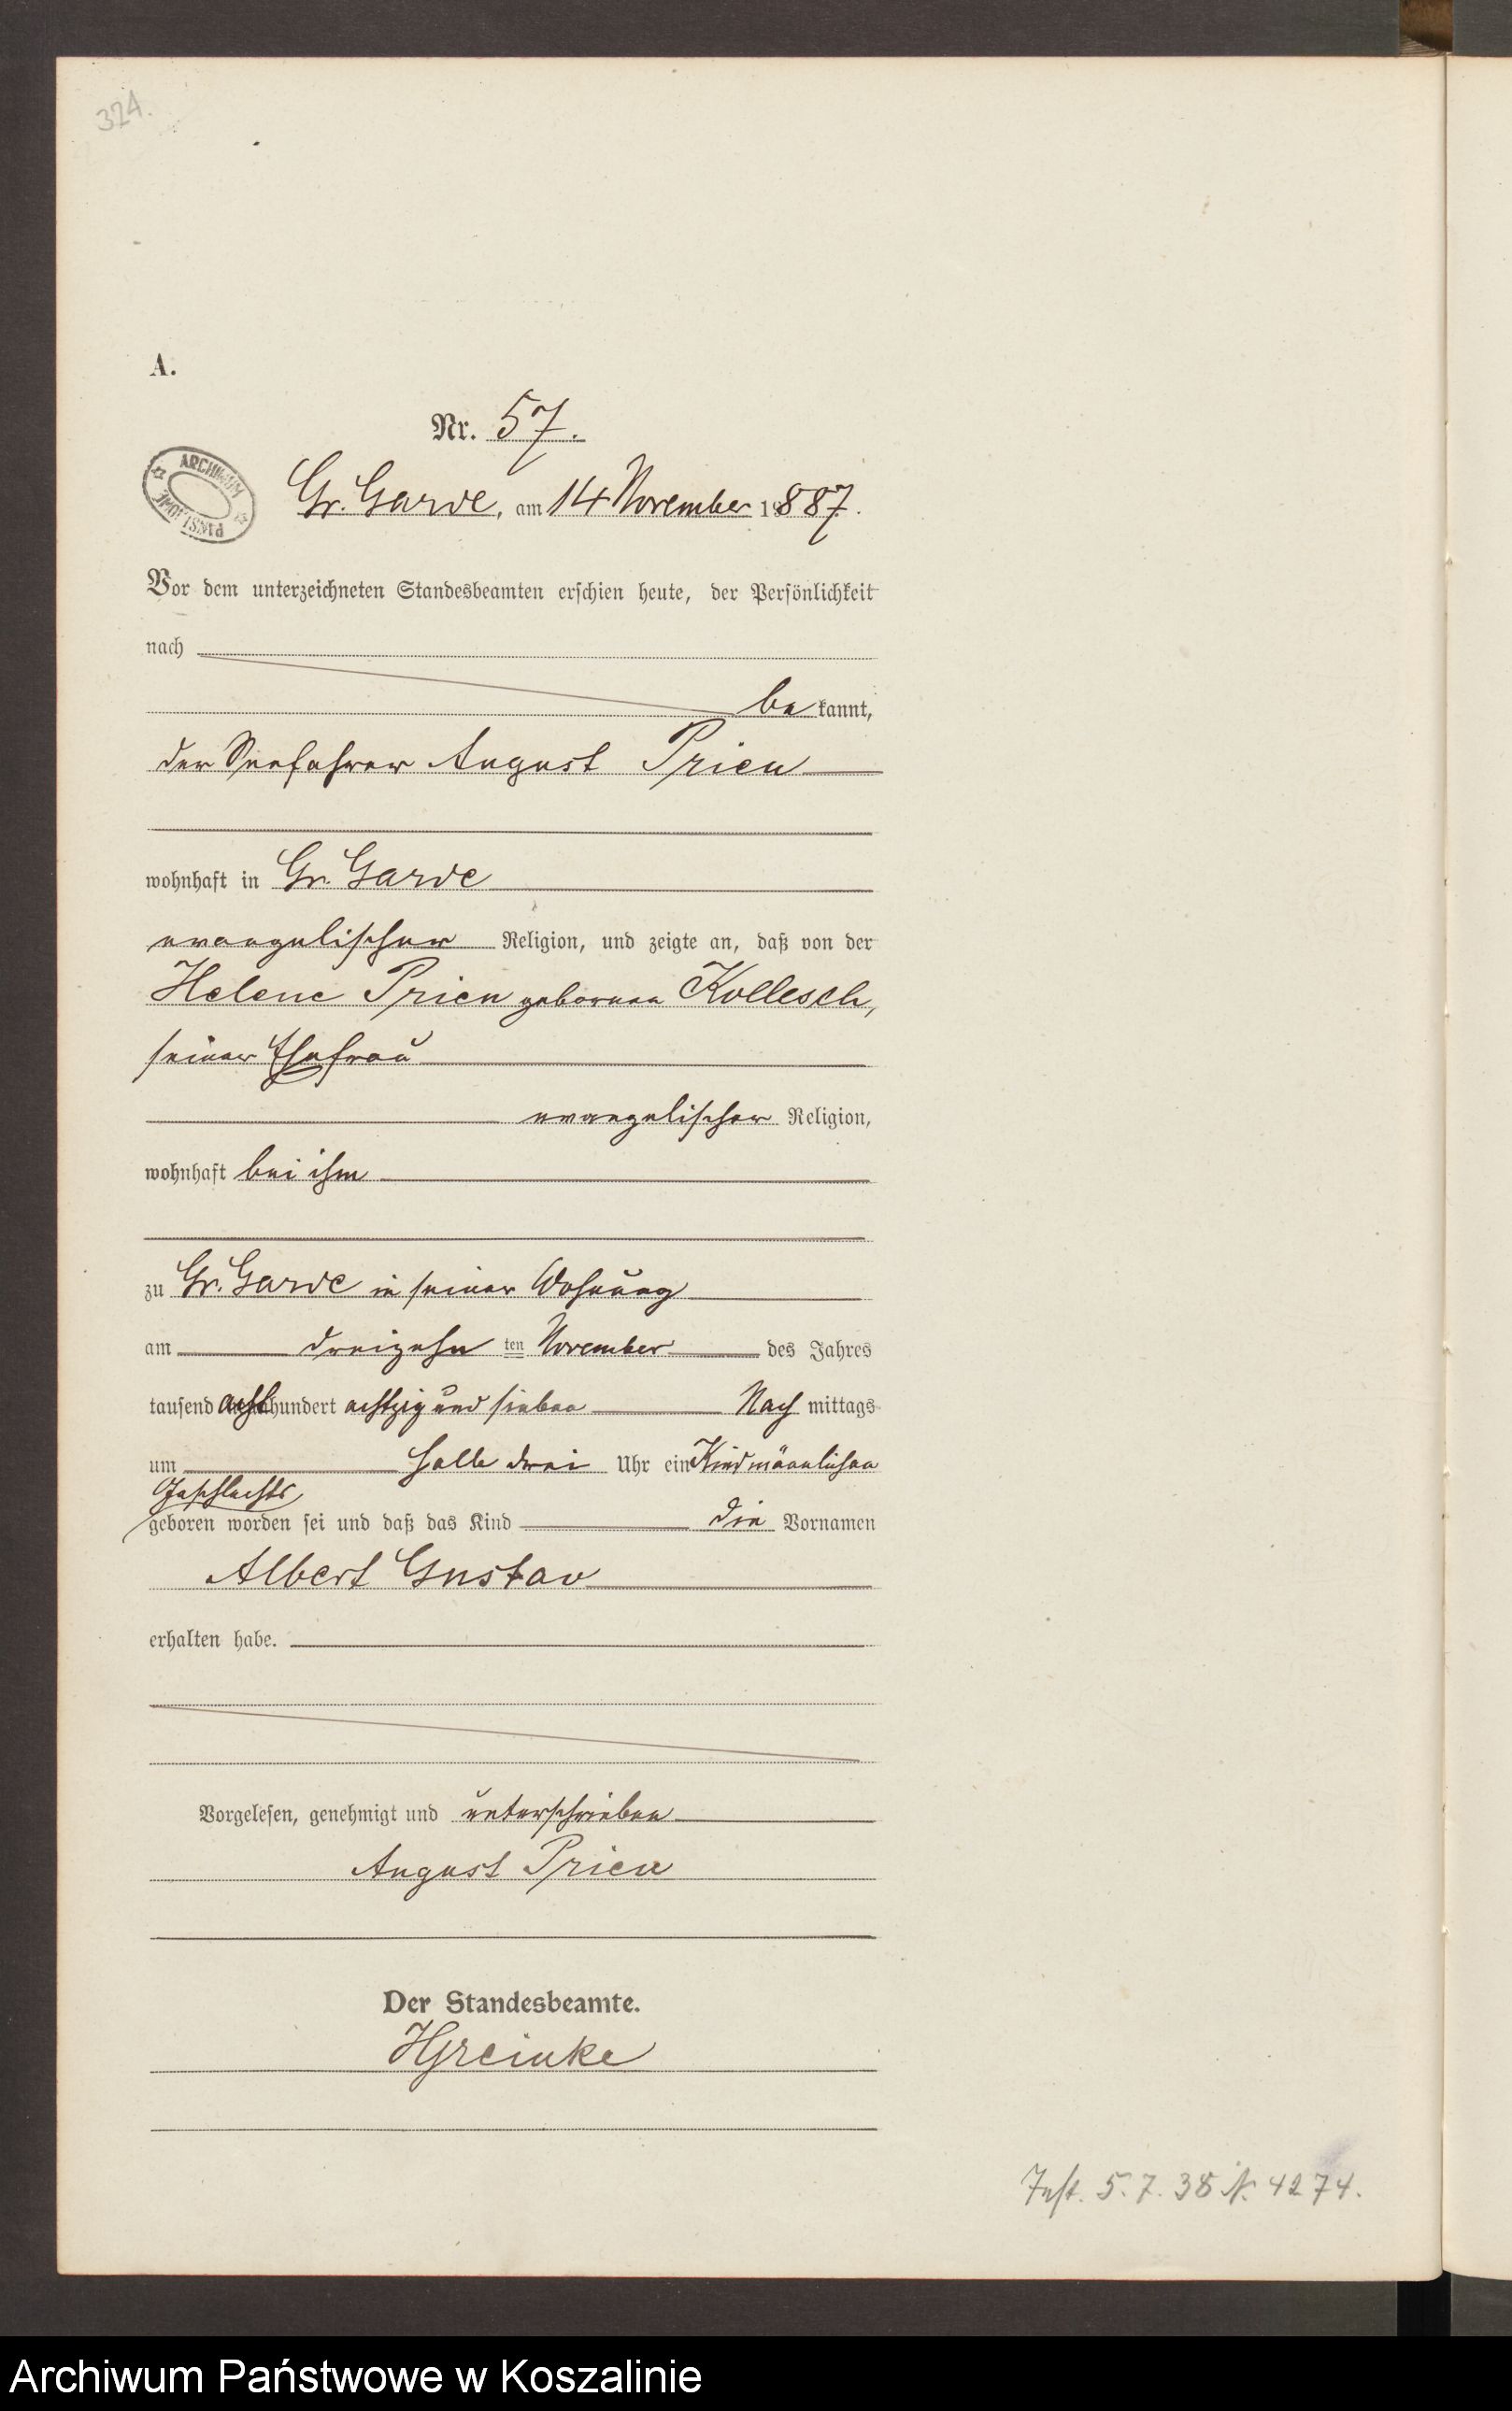 324.
A.
Nr. 57.
ARCHIWUM PAŃSTWOWE
Gr. Garde, am 14 November 1887.
Vor dem unterzeichneten Standesbeamten erschien heute, der Persönlichkeit
nach
be kannt,
der Seefahrer August Prien
wohnhaft in Gr. Garde
evangelischer Religion, und zeigte an, daß von der
Helene Prien geborenen Kollesch,
seiner Ehefrau
evangelischer Religion,
wohnhaft bei ihm
zu Gr. Garde in seiner Wohnung
am dreizehn ten November des Jahres
tausend achthundert achtzig und sieben Nach mittags
um halb drei Uhr ein Kind männlichen
Geschlechts
geboren worden sei und daß das Kind die Vornamen
Albert Gustav
erhalten habe.
Vorgelesen, genehmigt und unterschrieben
August Prien
Der Standesbeamte.
5. 7. 38 N. 4274.
Archiwum Państwowe w Koszalinie